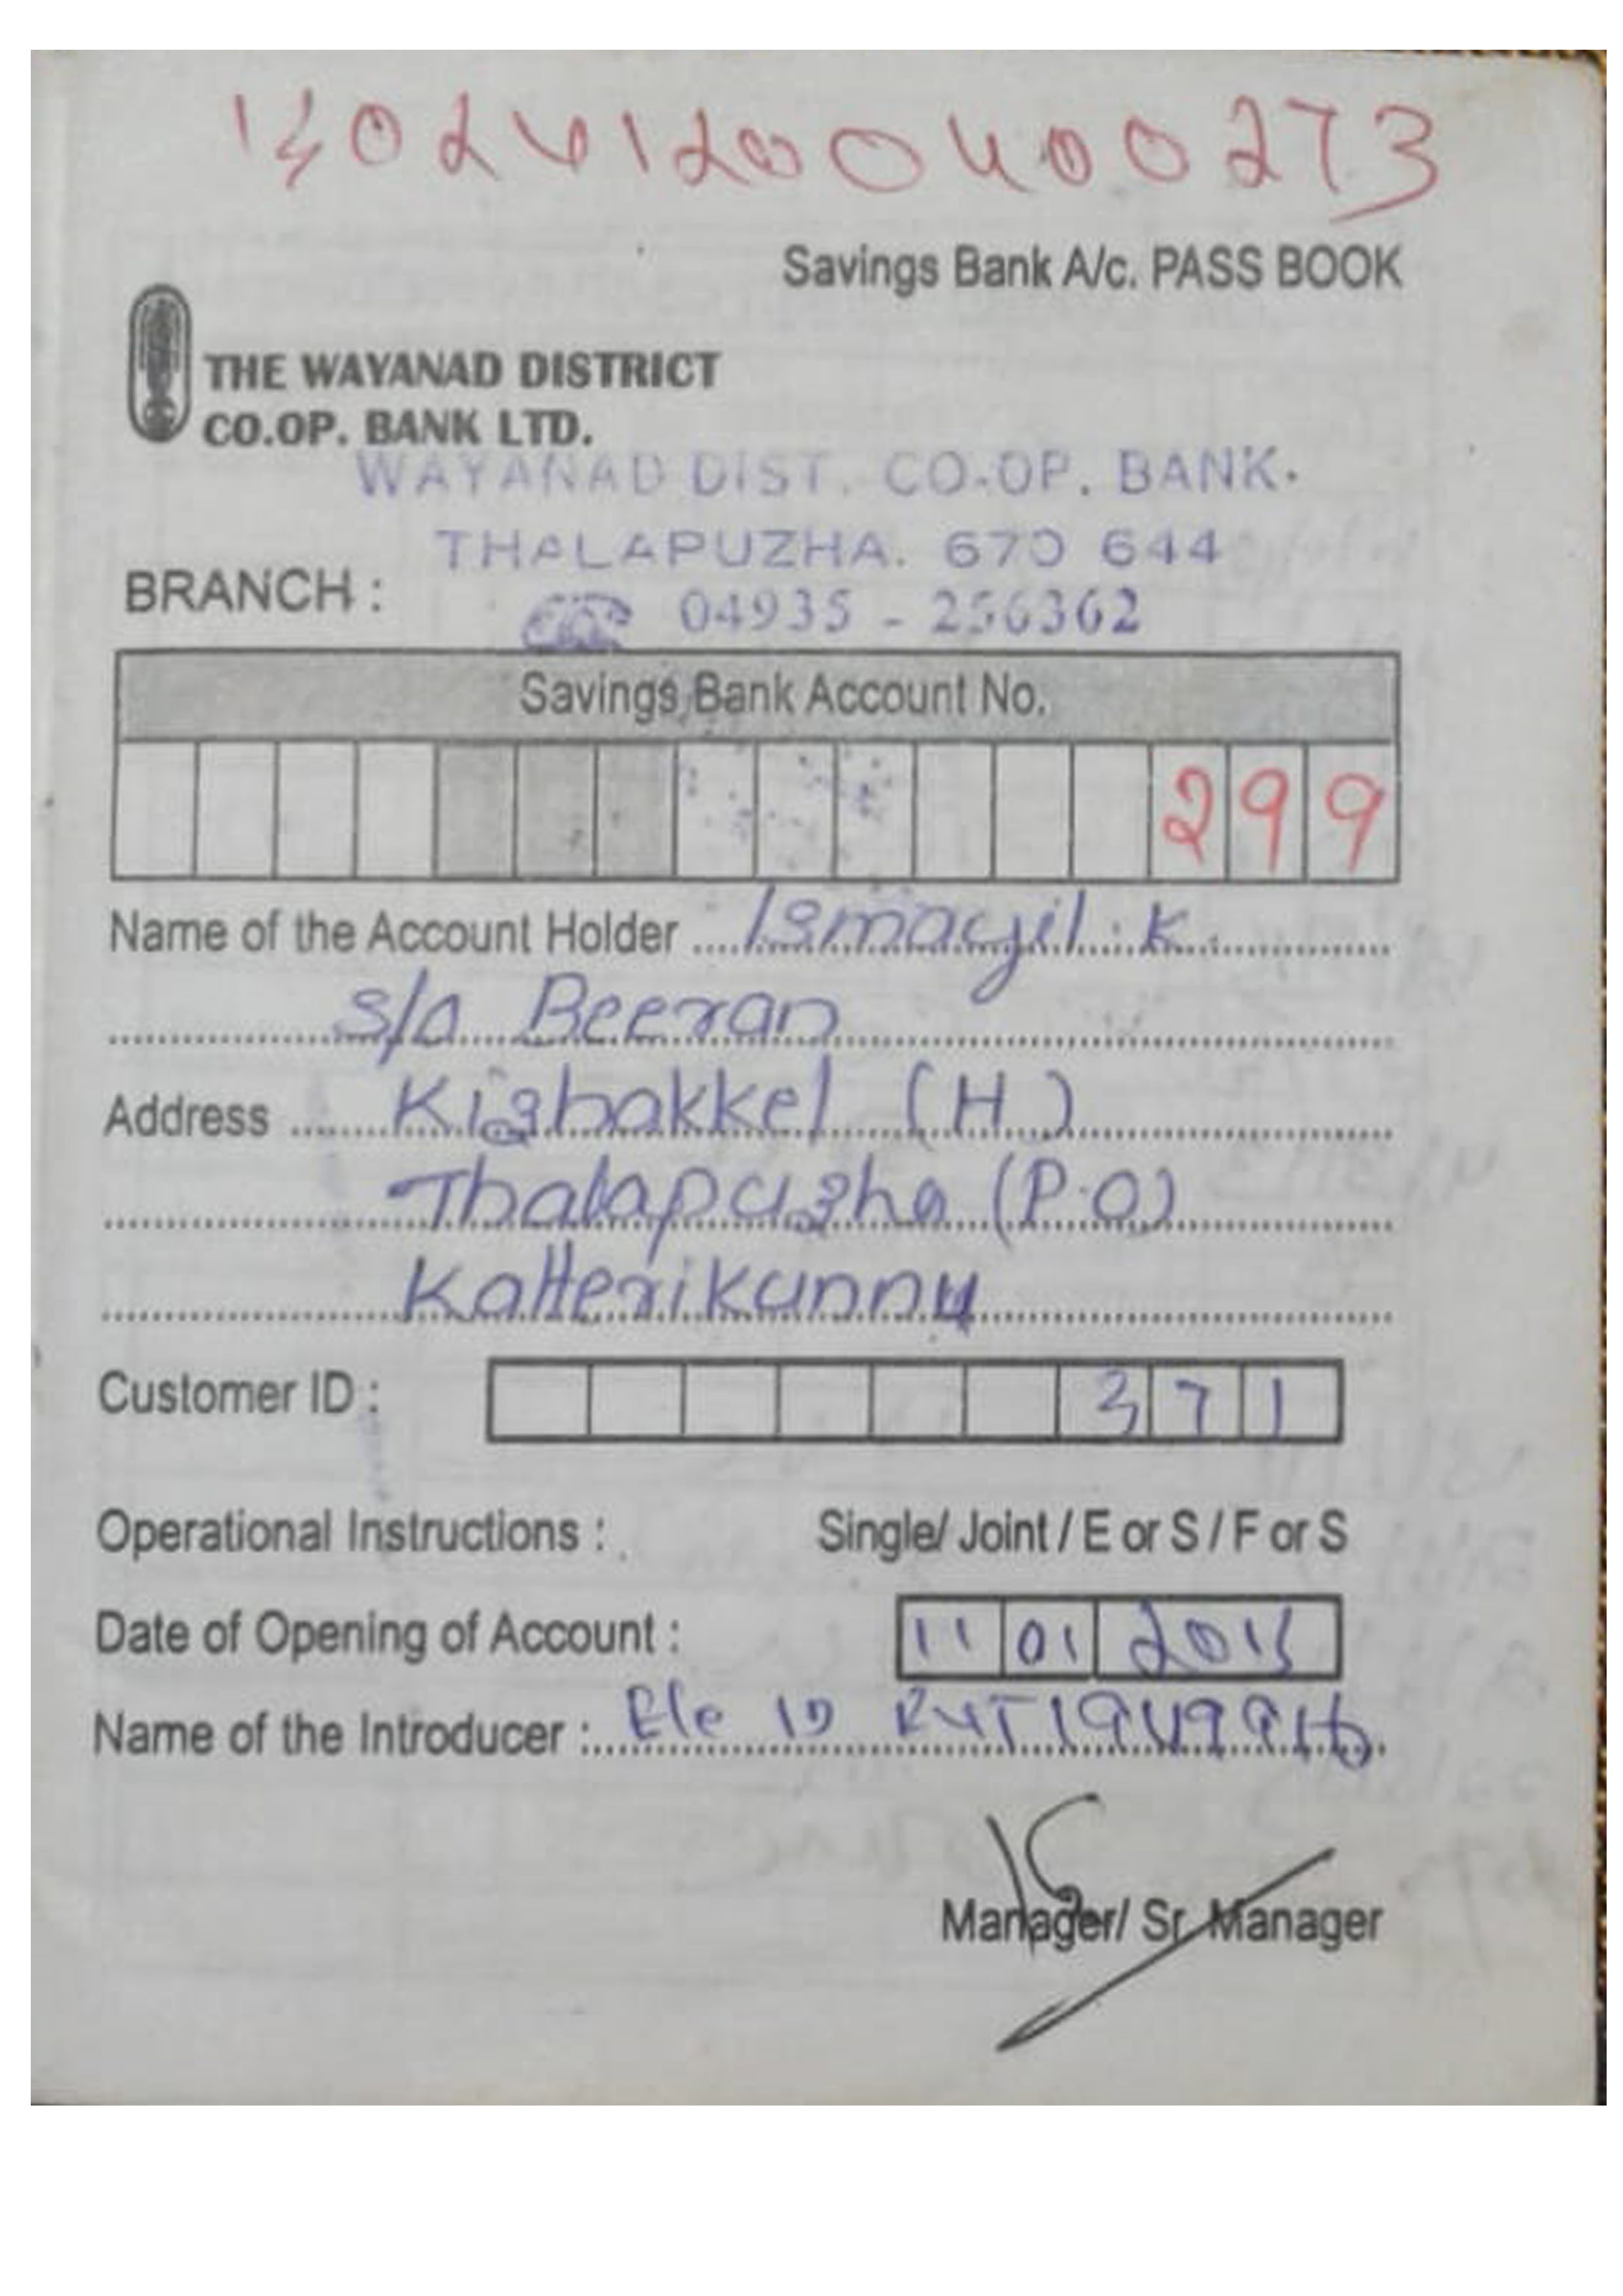 Savings Bank A/c. PASS BOOK
THE WAYANAD DISTRICT
CO.OP. BANK LTD.
WAYANAD DIST. CO-OP. BANK.
THALAPUZHA. 670 644
BRANCH :
04935 - 256362
Savings Bank Account No.
299
Name of the Account Holder Ismayil. K.
S/o Beeran
Address Kizhakkel (H)
Thalapuzha (P.O)
Katterikunnu
Customer ID : 371
Operational Instructions : Single/ Joint / E or S / F or S
Date of Opening of Account : 11 01
Name of the Introducer : Ele ID
Manager/ Sr. Manager